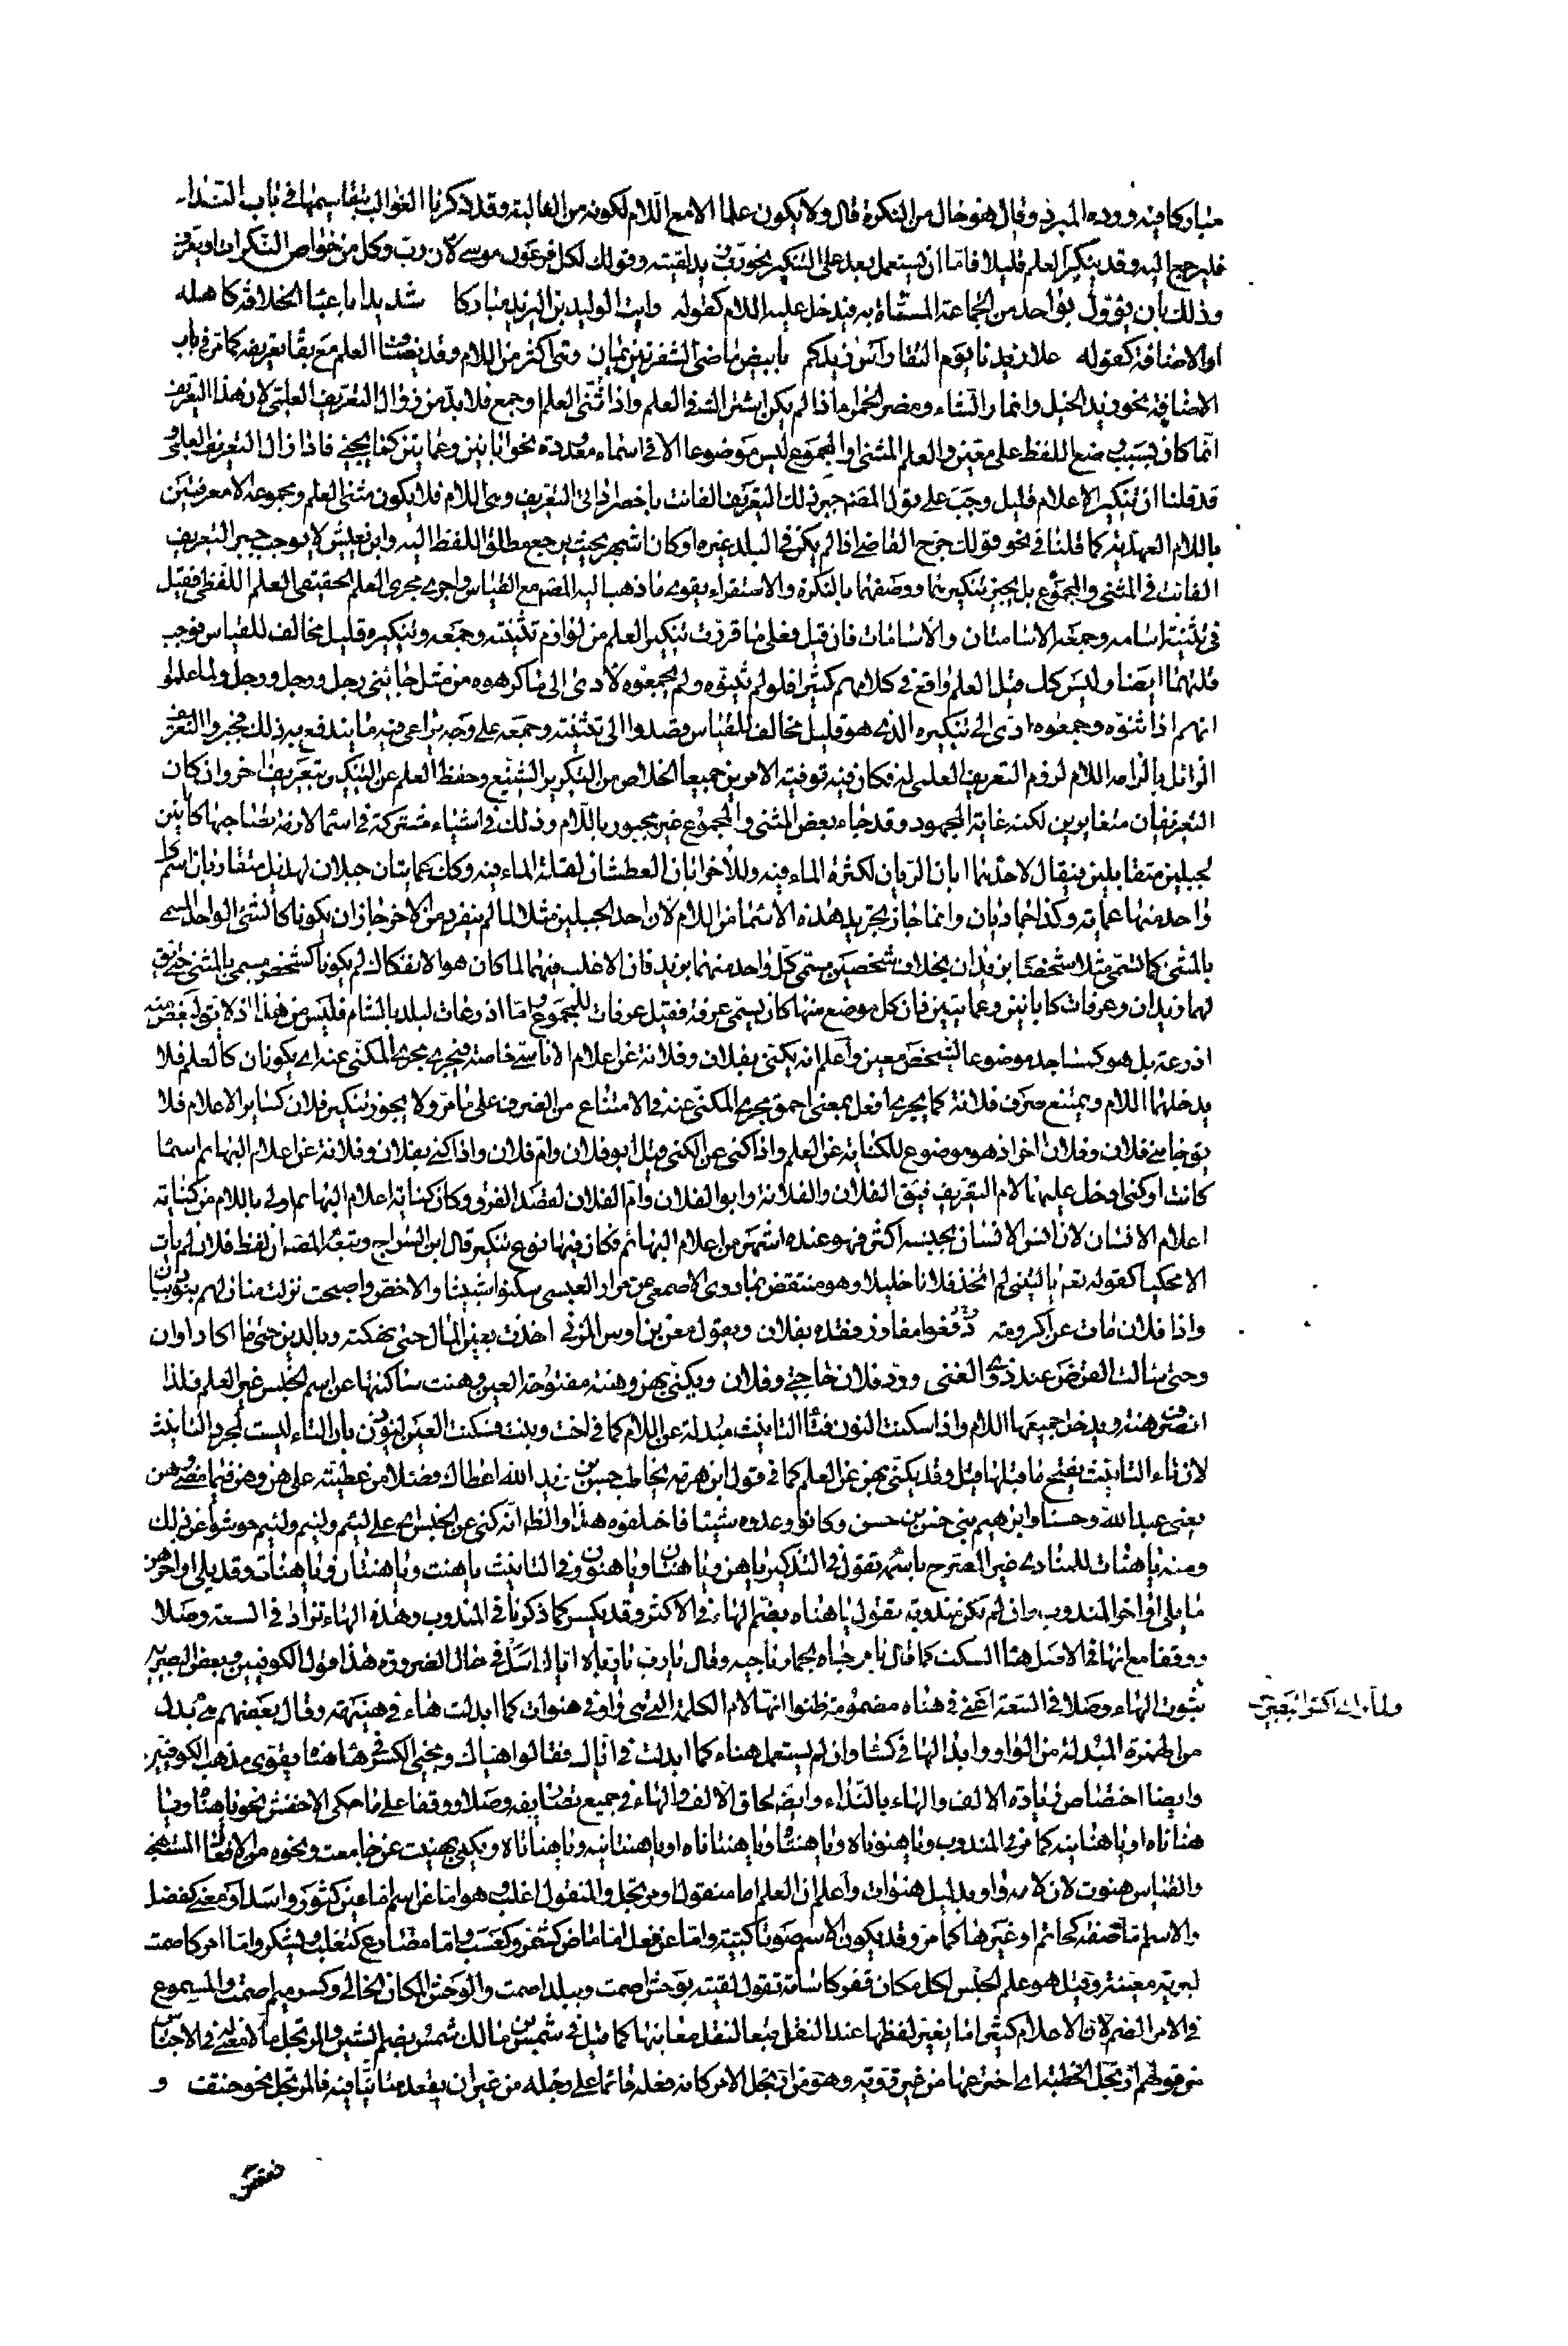 مباركا فيه ورده المبرد وقال هو حال من النكرة قال ولا يكون علما الا مع اللام لكونه من الغالبة وقد ذكرنا الغوالب بتقاسيمها في باب النداء
فليرجع اليه وقد ينكر العلم قليلا فاما ان يستعمل بعد على التنكير نحو رب زيد لقيته وقولك لكل فرعون موسى لان رب وكل من خواص النكرات او يعرف
وذلك بان يؤول بواحد من الجماعة المسماة به فيدخل عليه اللام كقوله رايت الوليد بن اليزيد مباركا شديدا باعباء الخلافة كاهله
او الاضافة كقوله علا زيدنا يوم النقا راس زيدكم بابيض ماضي الشفرتين يمان وهي اكثر من اللام وقد يضاف العلم مع بقاء تعريفه كما مر في باب
الاضافة نحو زيد الخيل وانمار الشاء ومضر الحمراء اذا لم يكن اشتراك في العلم واذا ثني العلم او جمع فلا بد من زوال التعريف العلمي لان هذا التعريف
انما كان بسبب وضع اللفظ على معين والعلم المثنى او المجموع ليس موضوعا الا في اسماء معدودة نحو ابانين وعمايتين كما يجيء فاذا زال التعريف العلمي و
قد قلنا ان تنكير الاعلام قليل وجب على قول المصنف جبر ذلك التعريف الفائت باخصر اداتي التعريف وهي اللام فلا يكون مثنى العلم ومجموعه الا معرفتين
باللام العهدية كما قلنا في نحو قولك خرج القاضي اذا لم يكن في البلد غيره او كان اشهر بحيث يرجع مطلق اللفظ اليه وابن يعيش لا يوجب جبر التعريف
الفائت في المثنى والمجموع بل يجيز تنكيرهما ووصفهما بالنكرة والاستقراء يقوي ما ذهب اليه المصنف مع القياس واجري مجرى العلم الحقيقي العلم اللفظي فقيل
في تثنية اسامة وجمعه الاسامتان والاسامات فان قيل فعلى ما قررت تنكير العلم من لوازم تثنيته وجمعه وتنكيره قليل مخالف للقياس فوجب
قلتهما ايضا وليس كذلك قيل العلم واقع في كلامهم كثيرا فلو لم يثنوه ولم يجمعوه لادى الى ما كرهوه من مثل جاءني رجل ورجل ورجل ولما علموا
انهم اذا ثنوه وجمعوه ادى الى تنكيره الذي هو قليل مخالف للقياس قصدوا الى تثنيته وجمعه على وجه يراعى فيه ما يندفع به ذلك فجبروا التعريف
الزائل بالزامه اللام لزوم التعريف العلمي له فكان فيه توفية الامرين جميعا الخلاص من التكرير الشنيع وحفظ العلم عن التنكير بتعريف اخر وان كان
التعريفان متغايرين لكنه غاية المجهود وقد جاء بعض المثنى والمجموع غير مجبور باللام وذلك في اشياء مشتركة في اسماء لازمة لها كابانين
لجبلين متقابلين يقال لاحدهما ابان الريان لكثرة الماء فيه وللاخر ابان العطشان لقلة الماء فيه وكذا عمايتان جبلان لهذيل متقاربان اسم كل
واحد منهما عماية وكذا جماديان وانما جاز تجريد هذه الاسماء من اللام لان احد الجبلين مثلا لما لم ينفرد من الاخر جاز ان يكونا كالشيء الواحد المسمى
بالمثنى كما تسمي مثلا شخصا بزيدان بخلاف شخصين يسمى كل واحد منهما بزيد فان الاغلب فيهما لما كان هو الانفكاك لم يكونا كشخص مسمى بالمثنى حتى يق
لهما زيدان وعرفات كابانين وعمايتين فان كل موضع منها كان يسمى عرفة فقيل عرفات للمجموع واما اذرعات لبلد بالشام فليس من هذا اذ لا يقال لبعض منه
اذرعة بل هو كمساجد موضوعا لشخص معين واعلم انه يكنى بفلان وفلانة عن اعلام الاناسي خاصة فيجري مجرى المكنى عنه اي يكونان كالعلم فلا
يدخلهما اللام ويمتنع صرف فلانة كما يجري افعل بمعنى احمق مجرى المكنى عنه في الامتناع من الصرف على ما مر ولا يجوز تنكير فلان كسائر الاعلام فلا
يق جاءني فلان وفلان اخر اذ هو موضوع للكناية عن العلم واذا كنى عن الكنى قيل ابو فلان وام فلان واذا كني بفلان وفلانة عن اعلام البهائم اسما
كانت او كنى ادخل عليهما لام التعريف فيق الفلان والفلانة وابو الفلان وام الفلان لقصد الفرق وكان كناية اعلام البهائم اولى باللام من كناية
اعلام الانسان لان انس الانسان بجنسه اكثر فهو عنده اشهر من اعلام البهائم فكان فيها نوع تنكير قال ابن السراج وتبعه المصنف ان لفظ فلان لم يات
الا محكيا كقوله نعم يا ليتني لم اتخذ فلانا خليلا وهو منتقض بما روى الاصمعي عن مرار العبسي سكنوا شبيثا والاخص واصبحت نزلت منازلهم بنو ذبيان
واذا فلان مات عن اكرومة رقعوا معاوز فقده بفلان وبقول معن بن اوس المزني اخذت بعين المال حتى نهكته وبالدين حتى ما اكاد ادان
وحتى سالت القرض عند ذوي الغنى ورد فلان حاجتي وفلان ويكنى بهن وهنة مفتوحة العين وهنت ساكنها عن اسم الجنس غير العلم فلذا
انصرف هنة ويدخل جميعها اللام واذا سكنت النون فتاء التانيث مبدلة عن اللام كما في اخت وبنت فسكنت العين ليؤذن بان التاء ليست لمجرد التانيث
لان تاء التانيث يفتح ما قبلها قيل وقد يكنى بهن عن العلم كما في قول ابن هرمة يخاطب حسن بن زيد الله اعطاك فضلا من عطيته على هن وهن فيما مضى وهن
يعني عبد الله وحسنا وابرهيم بني حسن بن حسن وكانوا وعدوه شيئا فاخلفوه هذا والظاهر انه كنى عن الجنس اي على لئيم ولئيم ولئيم حوشوا عن ذلك
ومنه يا هناه للمنادى غير المصرح باسمه تقول في التذكير يا هن ويا هنان ويا هنون وفي التانيث يا هنت ويا هنتان ويا هنات وقد يلي اواخرهن
ما يلي اواخر المندوب وان لم تكن مندوبة تقول يا هناه بضم الهاء في الاكثر وقد يكسر كما ذكرنا في المندوب وهذه الهاء تزاد في السعة وصلا
ووقفا مع انها في الاصل هاء السكت كما قال يا مرحباه بحمار ناجيه وقال يا رب يا رباه اياك اسل في حال الضرورة هذا قول الكوفيين وبعض البصريين
ولما راى اكثر البصريين
ثبوت الهاء وصلا في السعة اعني في هناه مضمومة ظنوا انها لام الكلمة التي هي واو في هنوات كما ابدلت هاء في هنيهة وقال بعضهم هي بدل
من الهمزة المبدلة من الواو وابدالها في كساء وان لم يستعمل هناء كما ابدلت في اياك فقالوا هياك ومجيء الكسر في هاء هناه يقوي مذهب الكوفيين
وايضا اختصاص زيادة الالف والهاء بالنداء وايضا لحاق الالف والهاء في جميع تصاريفه وصلا ووقفا على ما حكى الاخفش نحو يا هناه ويا
هناناه او يا هنانيه كما مر في المندوب ويا هنوناه ويا هنتاه ويا هنتاناه او يا هنتانيه ويا هناتاه ويكنى بهنيت عن جامعت ونحوه من الافعال المستهجنة
والقياس هنوت لان لامه واو بدليل هنوات واعلم ان العلم اما منقول او مرتجل والمنقول اغلب وهو اما عن اسم اما عين كثور واسد او معنى كفضل
والاسم اما صفة كحاتم او غيرها كما مر وقد يكون الاسم صوتا كببة واما عن فعل اما ماض كشمر وكعسب واما مضارع كتغلب ويشكر واما امر كاصمت
لبرية معينة وقيل هو علم الجنس لكل مكان قفر كاسامة تقول لقيته بوحش اصمت وببلد اصمت والوحش المكان الخالي وكسر ميم اصمت والمسموع
في الامر الضم لان الاعلام كثيرا ما يغير لفظها عند النقل تبعا لنقل معانيها كما قيل في شمس بن مالك شمس بضم الشين والمرتجل ما لا معنى له في الاجناس
من قولهم ارتجل الخطبة اي اخترعها من غير روية وهو من ارتجل الامر كانه فعله قائما على رجله من غير ان يقعد متانيا فيه فالمرتجل نحو حنتف و
فقعس